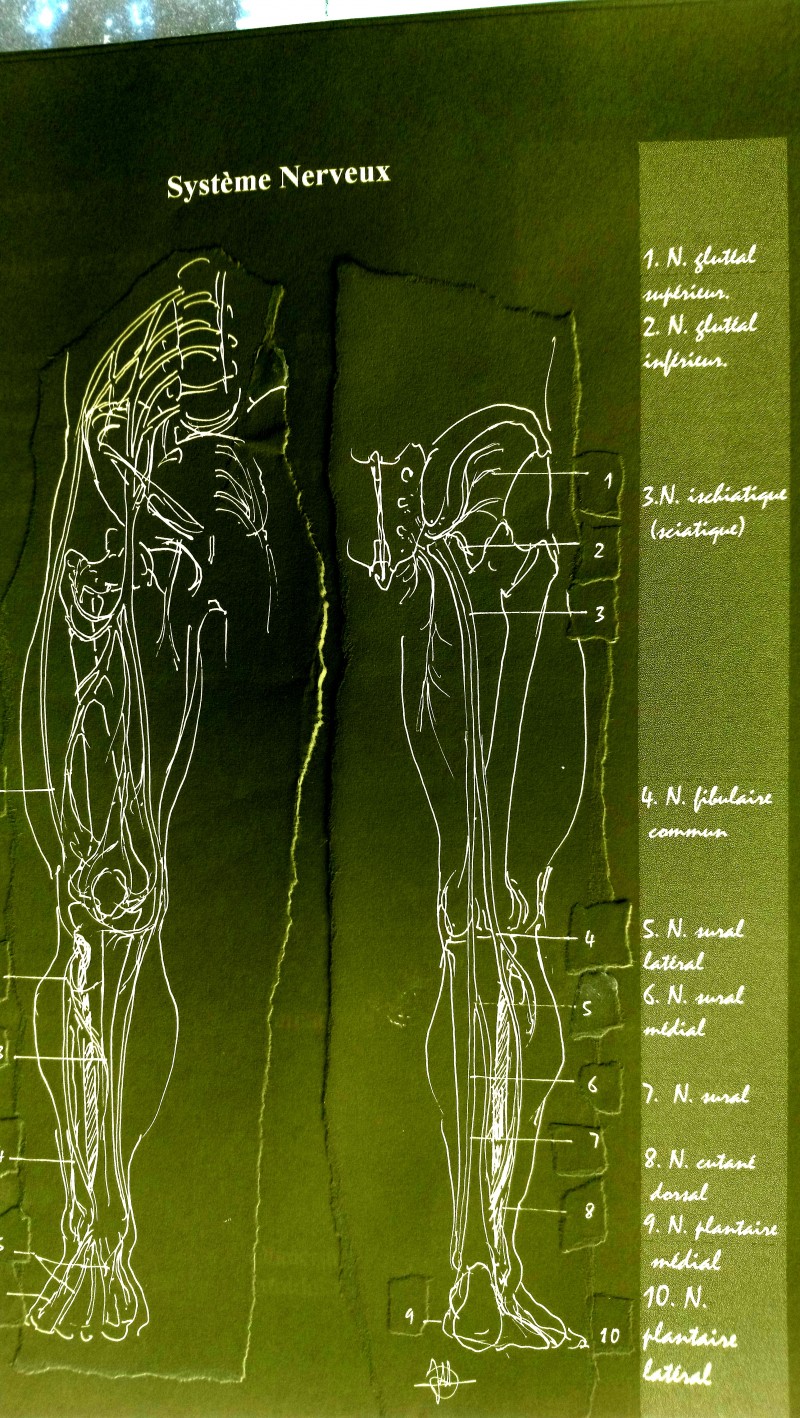 Système Nerveux
1. N. glutéal
supérieur.
2. N. glutéal
inférieur.
3.N. ischiatique
(sciatique)
4. N. fibulaire
commun
5. N. sural
latéral
6. N. sural
médial
7. N. sural
8. N. cutané
dorsal
9. N. plantaire
médial
10. N.
plantaire
latéral
1
2
3
4
5
6
7
8
9
10